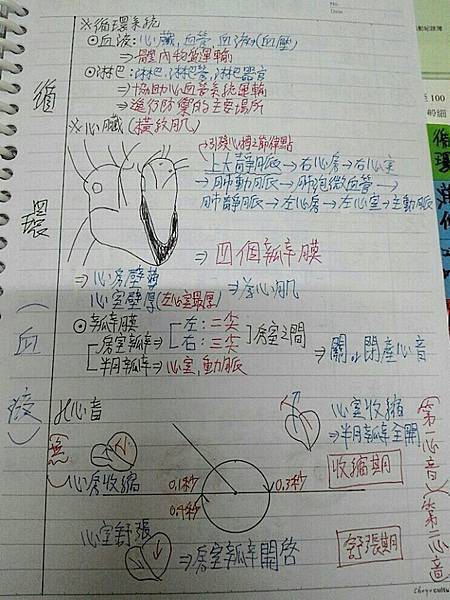 ※循環系統
⊙血液:心臟,血管,血液(血壓)
⇒體內物質運輸
⊙淋巴:淋巴,淋巴管,淋巴器官
⇒協助心血管系統運輸
⇒進行防禦的主要場所
※心臟(橫紋肌)
上大靜脈→右心房→右心室
→肺動脈→肺泡微血管→
肺靜脈→左心房→左心室→主動脈
⇒四個瓣膜
⇒心房壁薄
心室壁厚(左心室最厚)
⇒養心肌
⊙瓣膜
房室瓣⇒[左:二尖
右:三尖]房室之間
半月瓣⇒心室,動脈
⇒關閉產心音
循環(血液)
心音
心室收縮
⇒半月瓣全開
(無)
心房收縮
0.1秒
0.3秒
0.4秒
收縮期
(第一心音)
心室舒張
⇒房室瓣開啓
舒張期
(第二心音)
No.
Date
100
循環